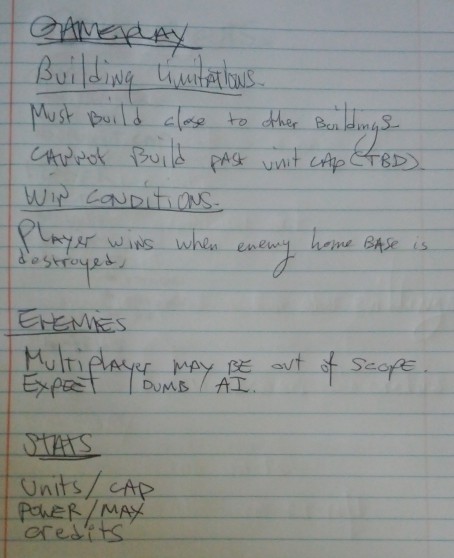 GAMEPLAY
Building Limitations.
Must Build close to other Buildings
CANNOT Build PAST unit CAP (TBD).
WIN CONDITIONS.
Player wins when enemy home BASE is
destroyed.
ENEMIES
Multiplayer MAY BE out of SCOPE.
EXPECT DUMB AI.
STATS
Units/CAP
POWER/MAX
credits